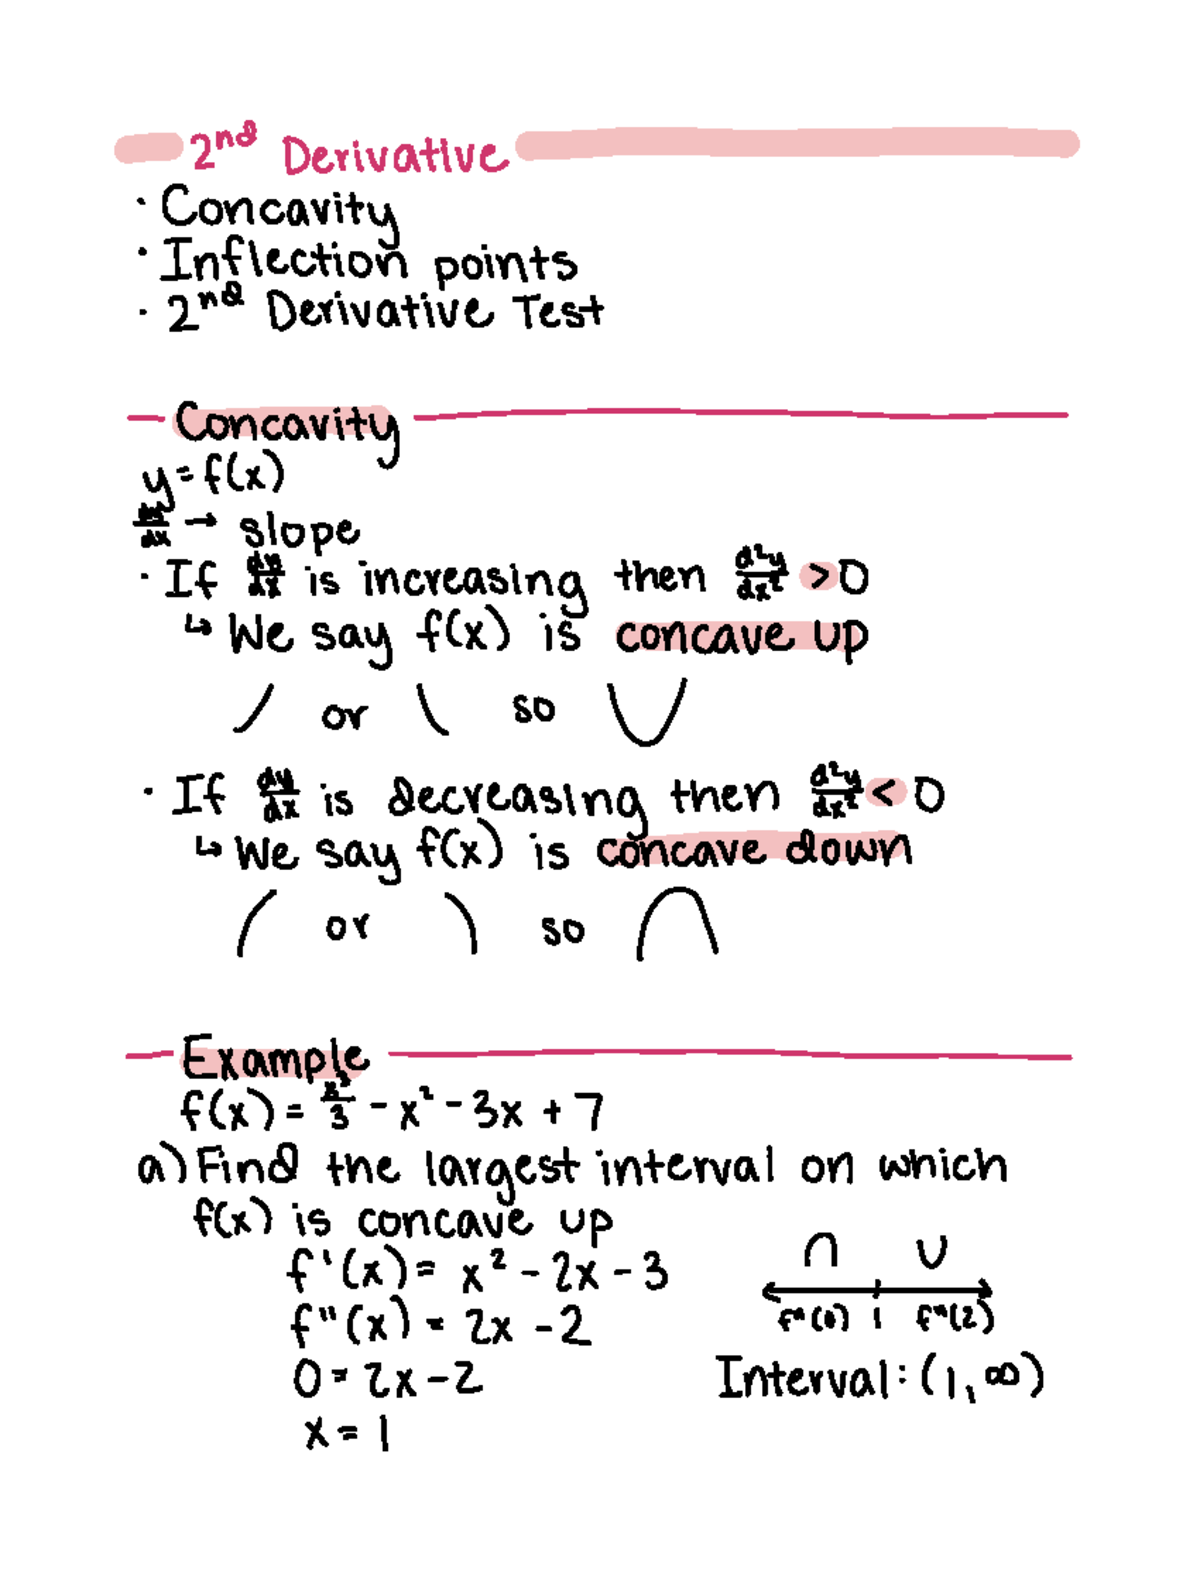 2nd Derivative
· Concavity
· Inflection points
· 2nd Derivative Test
Concavity
y = f(x)
dy/dx → slope
· If dy/dx is increasing then d²y/dx² > 0
↳ We say f(x) is concave up
or so
· If dy/dx is decreasing then d²y/dx² < 0
↳ We say f(x) is concave down
or so
Example
f(x) = x³/3 - x² - 3x + 7
a) Find the largest interval on which
f(x) is concave up
f'(x) = x² - 2x - 3
f"(x) = 2x - 2
f"(0) 1 f"(2)
0 = 2x - 2
Interval: (1, ∞)
x = 1